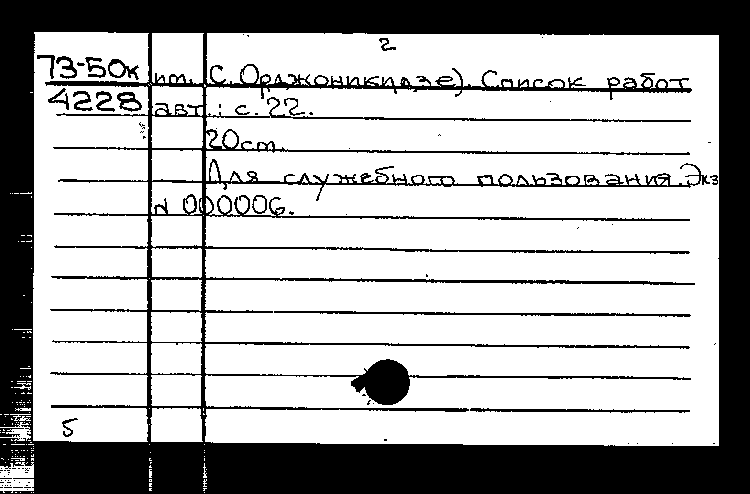 2
73-50к им. С. Орджоникидзе). Список работ
4228 авт.: с. 22.
20см.
Для служебного пользования. Экз
N 000006.
5